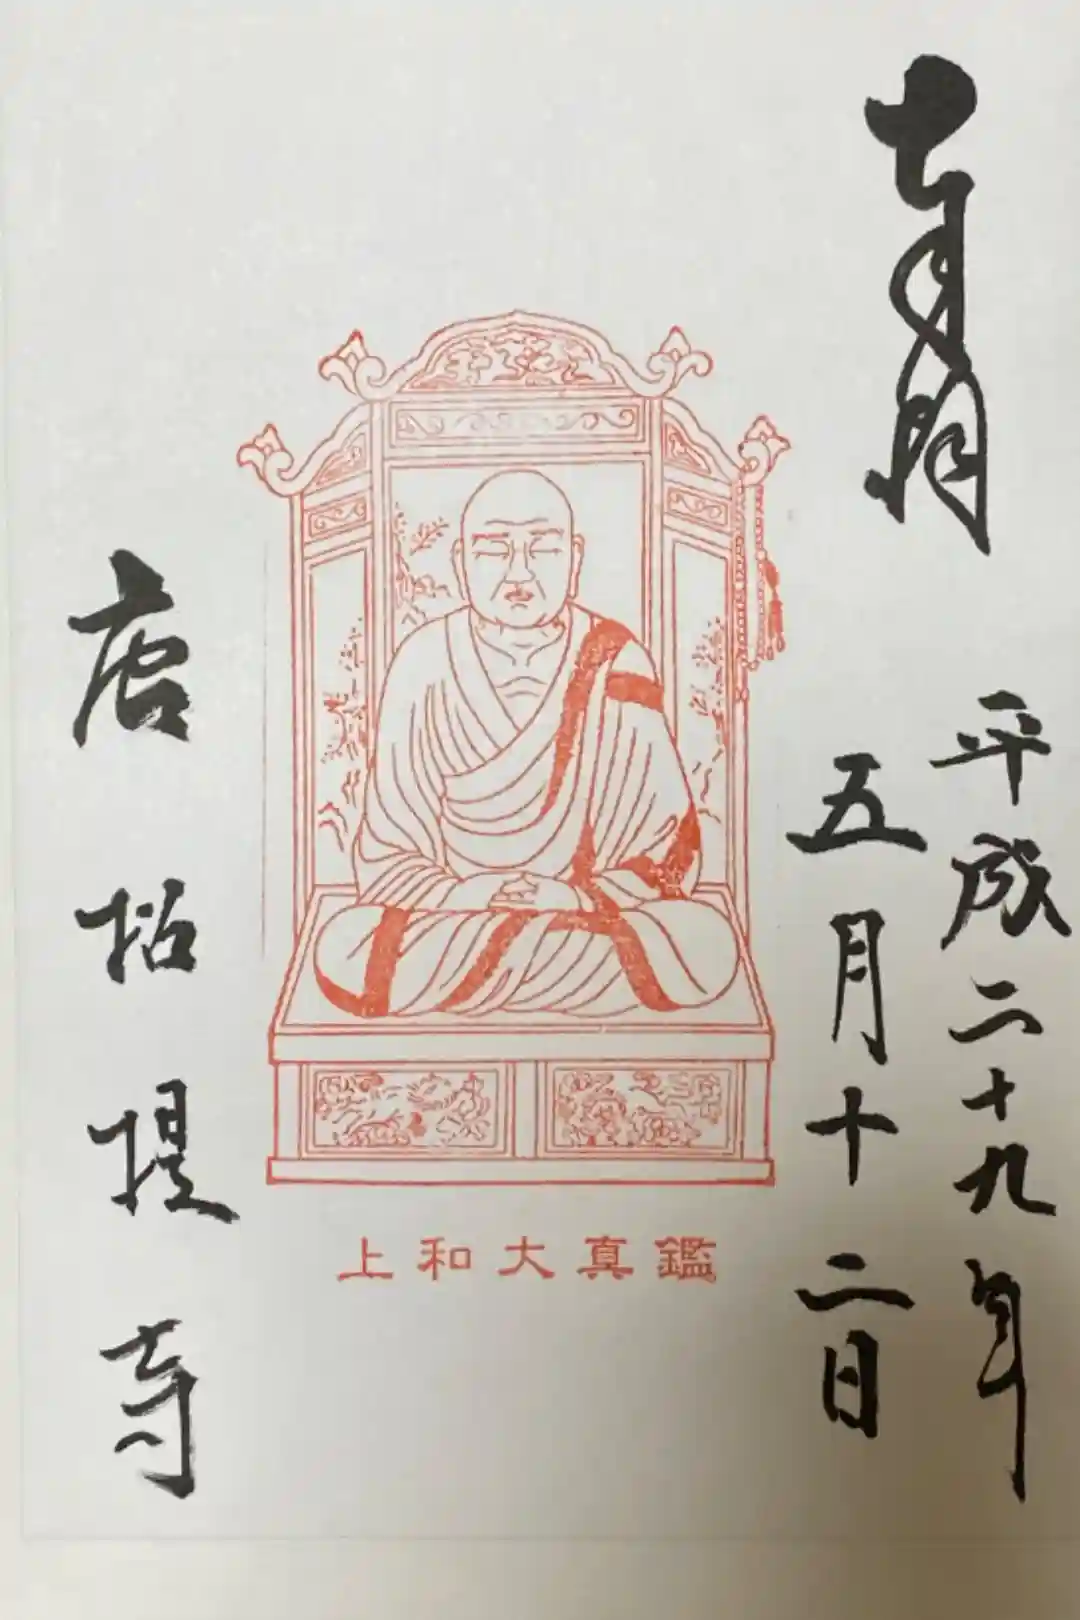 平成二十九年
五月十二日
鑑真大和上
唐招提寺